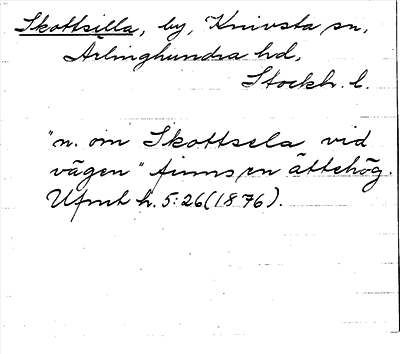 Skottsilla, by, Knivsta sn,
Ärlinghundra hd,
Stockh. l.
"n. om Skottsela vid
vägen" finns en ättehög.
Ufmt h. 5:26(1876).